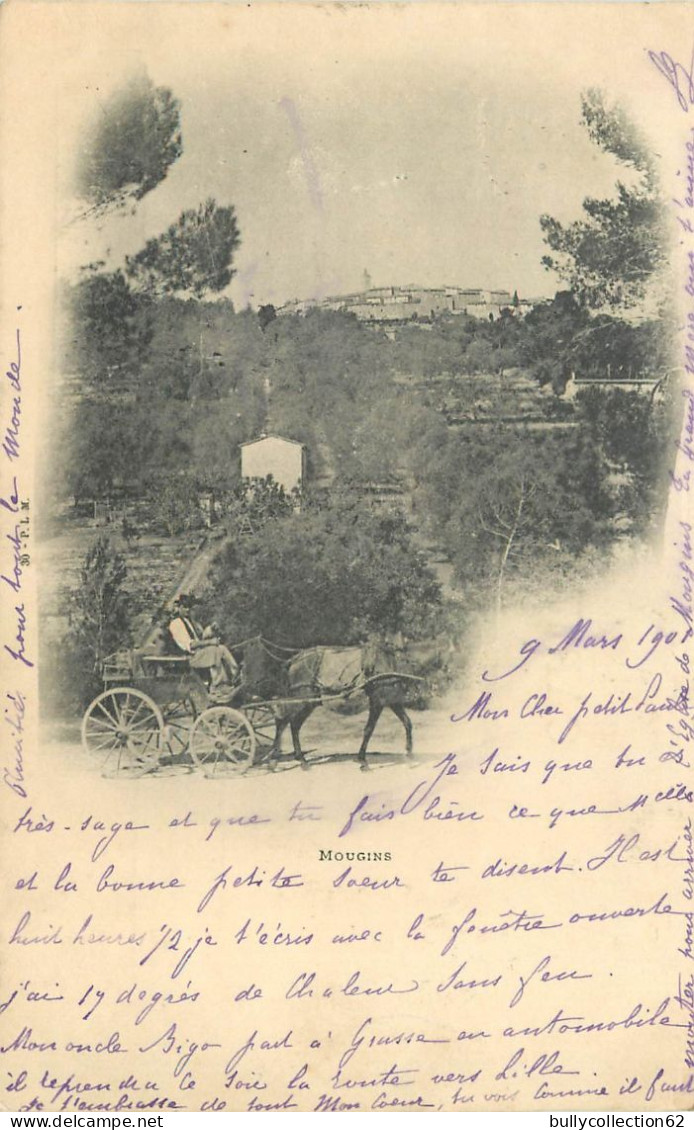 9 Mars 1901
Mon Cher petit Paul
Je sais que tu
très-sage et que tu fais bien ce que Melle
et la bonne petite Soeur te disent. Il est
huit heures 1/2 je t'écris avec la fenêtre ouverte
j'ai 17 degrés de Chaleur Sans feu.
Mon oncle Bigo part à Grasse en automobile
il reprendra ce Soir la route vers Lille.
Je t'embrasse de tout Mon Coeur, tu vois comme il faut
monter pour arriver à l'Eglise de Mougins
Amitiés pour tout le Monde.
MOUGINS
30 P. L. M.
bullycollection62